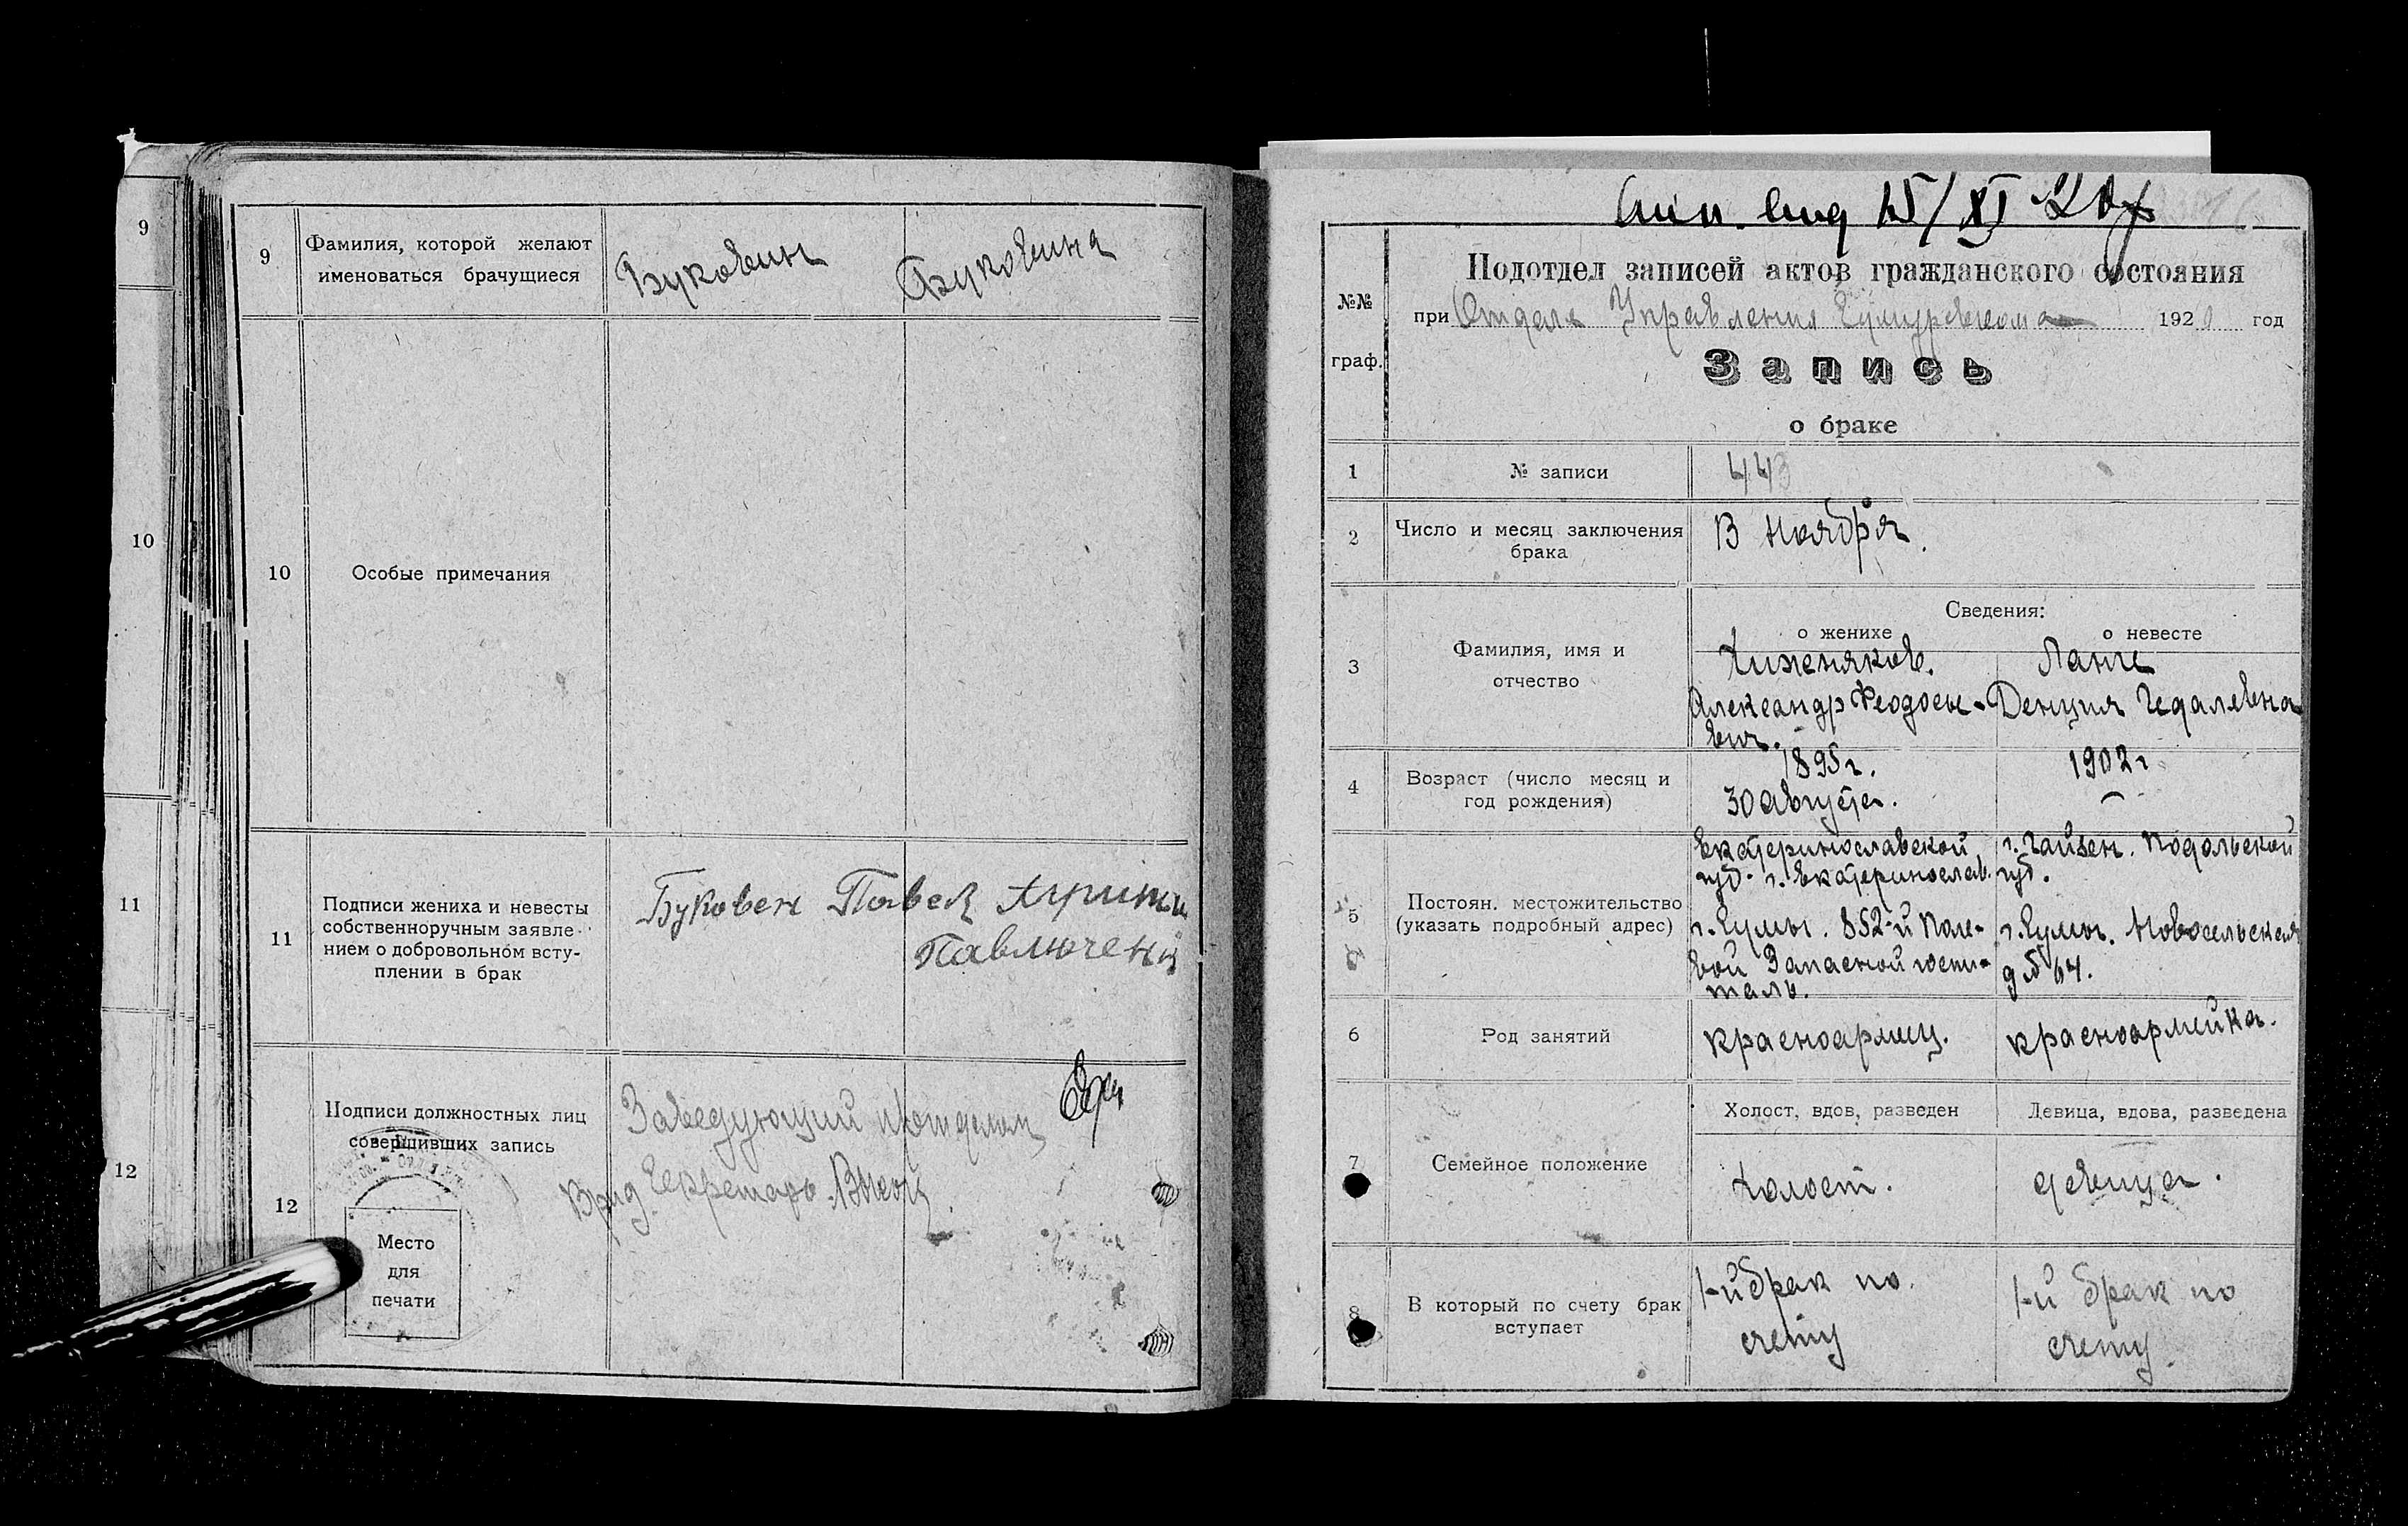 9
10
11
12
9
Фамилия, которой желают
именоваться брачущиеся
Буковин
Буковина
10
Особые примечания
11
Подписи жениха и невесты
собственноручным заявле-
нием о добровольном всту-
плении в брак
Буковен Павел
12
Подписи должностных лиц
совершивших запись
Заведующий
Врид. Секретарь
Место
для
печати
15/XI 20г
№№
граф.
Подотдел записей актов гражданского состояния
при Отделе Управления 1920 год
Запись
о браке
1
№ записи
443
2
Число и месяц заключения
брака
13 Ноября.
3
Фамилия, имя и
отчество
Сведения:
о женихе
о невесте
Хиженяков.
Александр Феодосье-
вич.
Ланге
Гедалевна
4
Возраст (число месяц и
год рождения)
1895 г.
30 августа.
1902 г
5
Постоян. местожительство
(указать подробный адрес)
Екатеринославской
губ. г. Екатеринослав.
г. Сумы. 852-й Поле-
вой Запасной госпи-
таль.
г. Гайсен. Подольской
губ.
г. Сумы. Новосельская
д № 64.
6
Род занятий
красноармец.
красноармейка.
7
Семейное положение
Холост, вдов, разведен
Девица, вдова, разведена
холост.
девица.
8
В который по счету брак
вступает
1-й брак по
счету
1-й брак по
счету.